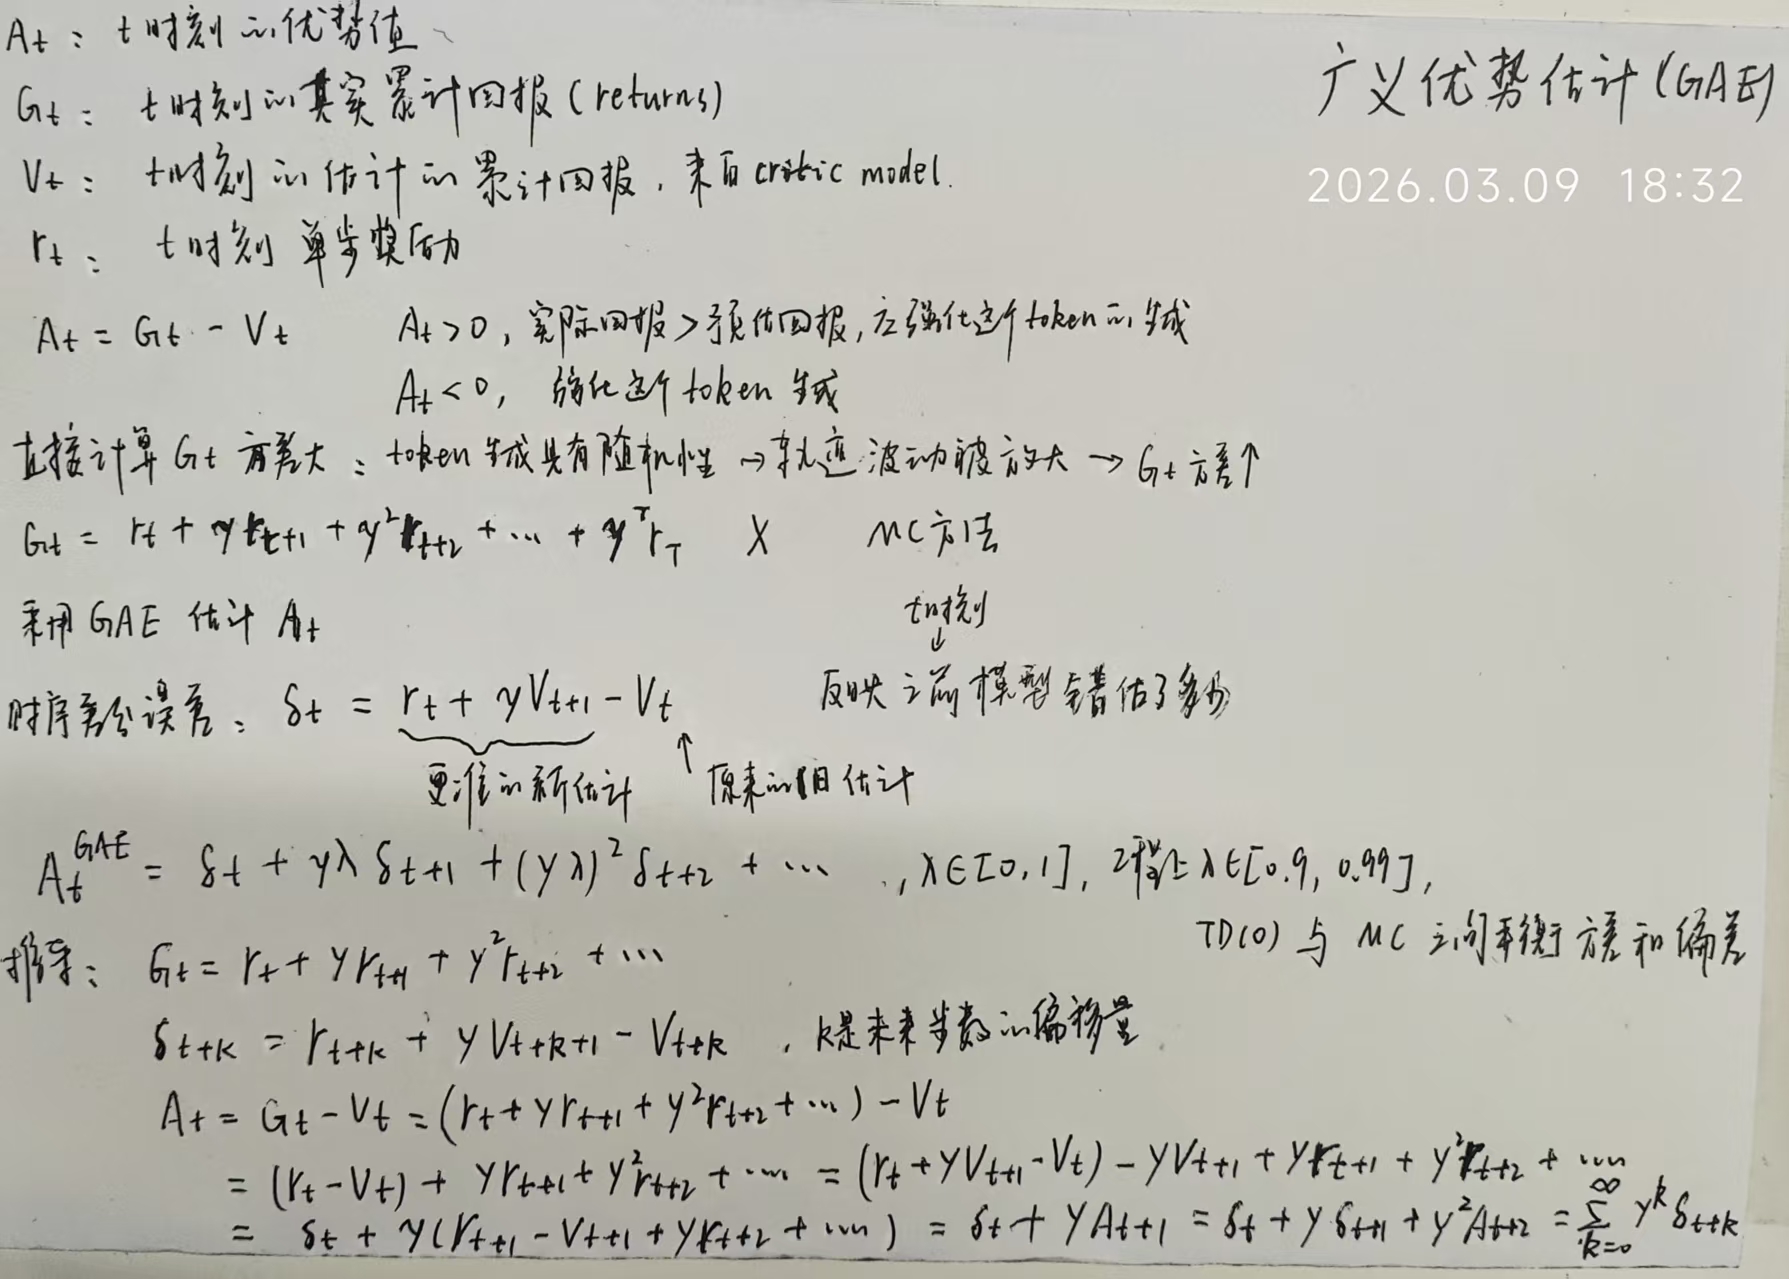 广义优势估计(GAE)
2026.03.09 18:32
At: t时刻的优势值
Gt: t时刻的真实累计回报(returns)
Vt: t时刻的估计的累计回报,来自critic model.
rt: t时刻单步奖励
At = Gt - Vt    At>0, 实际回报>预估回报,应强化这个token的生成
At<0, 弱化这个token生成
直接计算Gt方差大: token生成具有随机性→轨迹波动被放大→Gt方差↑
Gt = rt + γrt+1 + γ²rt+2 + … + γ^T rT  X    MC方法
采用GAE估计At
t时刻
↓
时序差分误差: δt = rt + γVt+1 - Vt    反映之前模型错估了多少
更准的新估计  ↑ 原来的旧估计
At^GAE = δt + γλδt+1 + (γλ)²δt+2 + … , λ∈[0,1], 工程上λ∈[0.9, 0.99],
TD(0)与MC之间平衡方差和偏差
推导: Gt = rt + γrt+1 + γ²rt+2 + …
δt+k = rt+k + γVt+k+1 - Vt+k , k是未来步数的偏移量
At = Gt - Vt = (rt + γrt+1 + γ²rt+2 + …) - Vt
= (rt - Vt) + γrt+1 + γ²rt+2 + … = (rt + γVt+1 - Vt) - γVt+1 + γrt+1 + γ²rt+2 + …
= δt + γ(rt+1 - Vt+1 + γrt+2 + …) = δt + γAt+1 = δt + γδt+1 + γ²At+2 = ∑_{k=0}^{∞} γ^k δt+k